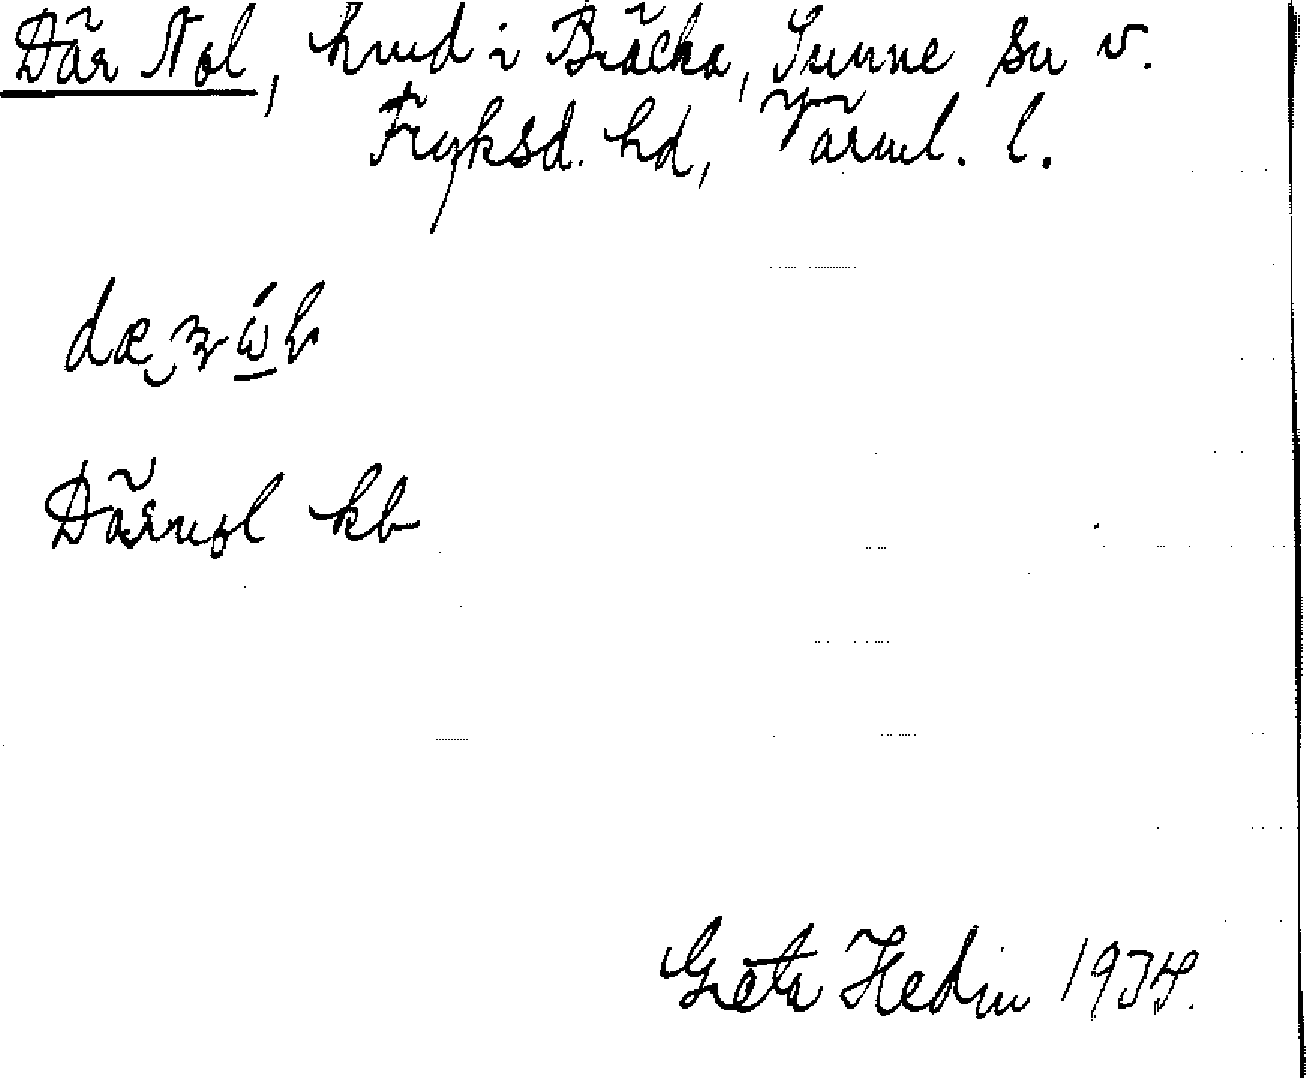 Där Nol, hmd i Bräcka, Sunne sn v.
Fryksd. hd, Värml. l.
Därnol kb
Greta Hedin 1934.